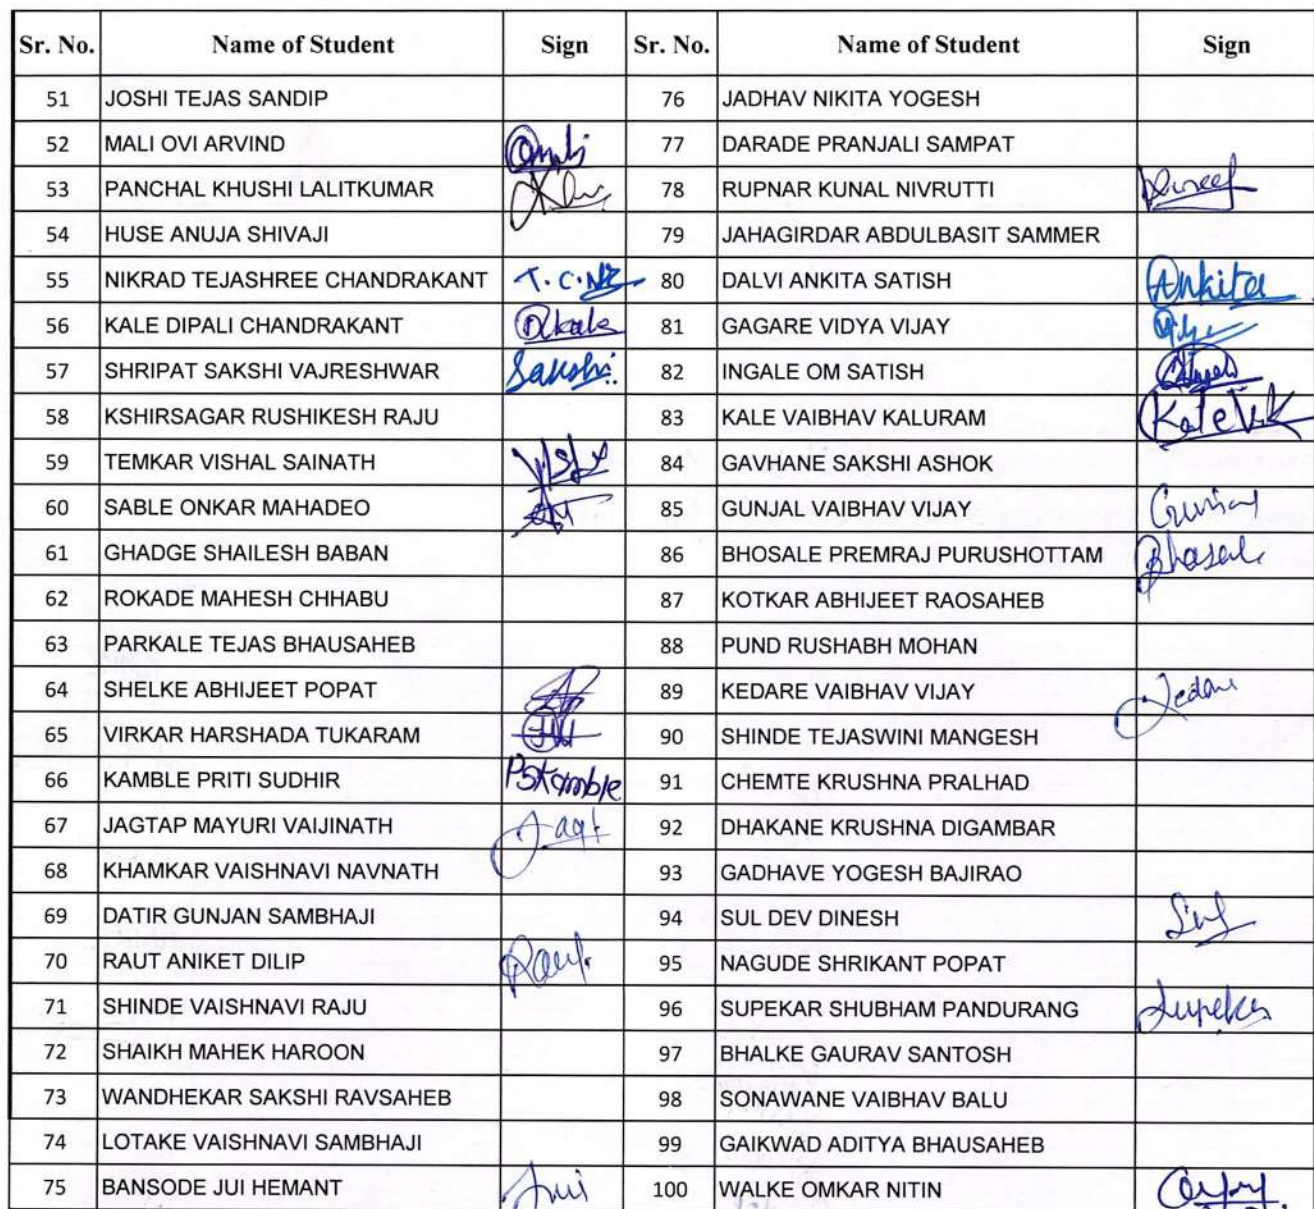 Sr. No. Name of Student Sign Sr. No. Name of Student Sign
51 JOSHI TEJAS SANDIP 76 JADHAV NIKITA YOGESH
52 MALI OVI ARVIND 77 DARADE PRANJALI SAMPAT
53 PANCHAL KHUSHI LALITKUMAR 78 RUPNAR KUNAL NIVRUTTI
54 HUSE ANUJA SHIVAJI 79 JAHAGIRDAR ABDULBASIT SAMMER
55 NIKRAD TEJASHREE CHANDRAKANT 80 DALVI ANKITA SATISH Ankita
56 KALE DIPALI CHANDRAKANT Dkale 81 GAGARE VIDYA VIJAY
57 SHRIPAT SAKSHI VAJRESHWAR Sakshi 82 INGALE OM SATISH
58 KSHIRSAGAR RUSHIKESH RAJU 83 KALE VAIBHAV KALURAM Kale V.K
59 TEMKAR VISHAL SAINATH 84 GAVHANE SAKSHI ASHOK
60 SABLE ONKAR MAHADEO 85 GUNJAL VAIBHAV VIJAY Gunjal
61 GHADGE SHAILESH BABAN 86 BHOSALE PREMRAJ PURUSHOTTAM Bhosale
62 ROKADE MAHESH CHHABU 87 KOTKAR ABHIJEET RAOSAHEB
63 PARKALE TEJAS BHAUSAHEB 88 PUND RUSHABH MOHAN
64 SHELKE ABHIJEET POPAT 89 KEDARE VAIBHAV VIJAY
65 VIRKAR HARSHADA TUKARAM 90 SHINDE TEJASWINI MANGESH
66 KAMBLE PRITI SUDHIR PSKamble 91 CHEMTE KRUSHNA PRALHAD
67 JAGTAP MAYURI VAIJINATH 92 DHAKANE KRUSHNA DIGAMBAR
68 KHAMKAR VAISHNAVI NAVNATH 93 GADHAVE YOGESH BAJIRAO
69 DATIR GUNJAN SAMBHAJI 94 SUL DEV DINESH Sul
70 RAUT ANIKET DILIP 95 NAGUDE SHRIKANT POPAT
71 SHINDE VAISHNAVI RAJU 96 SUPEKAR SHUBHAM PANDURANG Supekar
72 SHAIKH MAHEK HAROON 97 BHALKE GAURAV SANTOSH
73 WANDHEKAR SAKSHI RAVSAHEB 98 SONAWANE VAIBHAV BALU
74 LOTAKE VAISHNAVI SAMBHAJI 99 GAIKWAD ADITYA BHAUSAHEB
75 BANSODE JUI HEMANT Jui 100 WALKE OMKAR NITIN